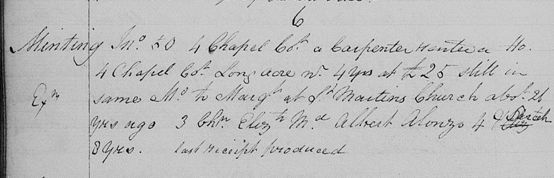 6
Minting Jno 50 4 Chapel Cot. a Carpenter rented a Ho.
4 Chapel Cot. Long acre nr. 4 yrs at £25 still in
Exn same Mo. to Margt at St Martins Church abot. 21
yrs ago 3 Chn Elizth Md Albert Alonzo 4 Sarah
8 yrs. last receipt produced